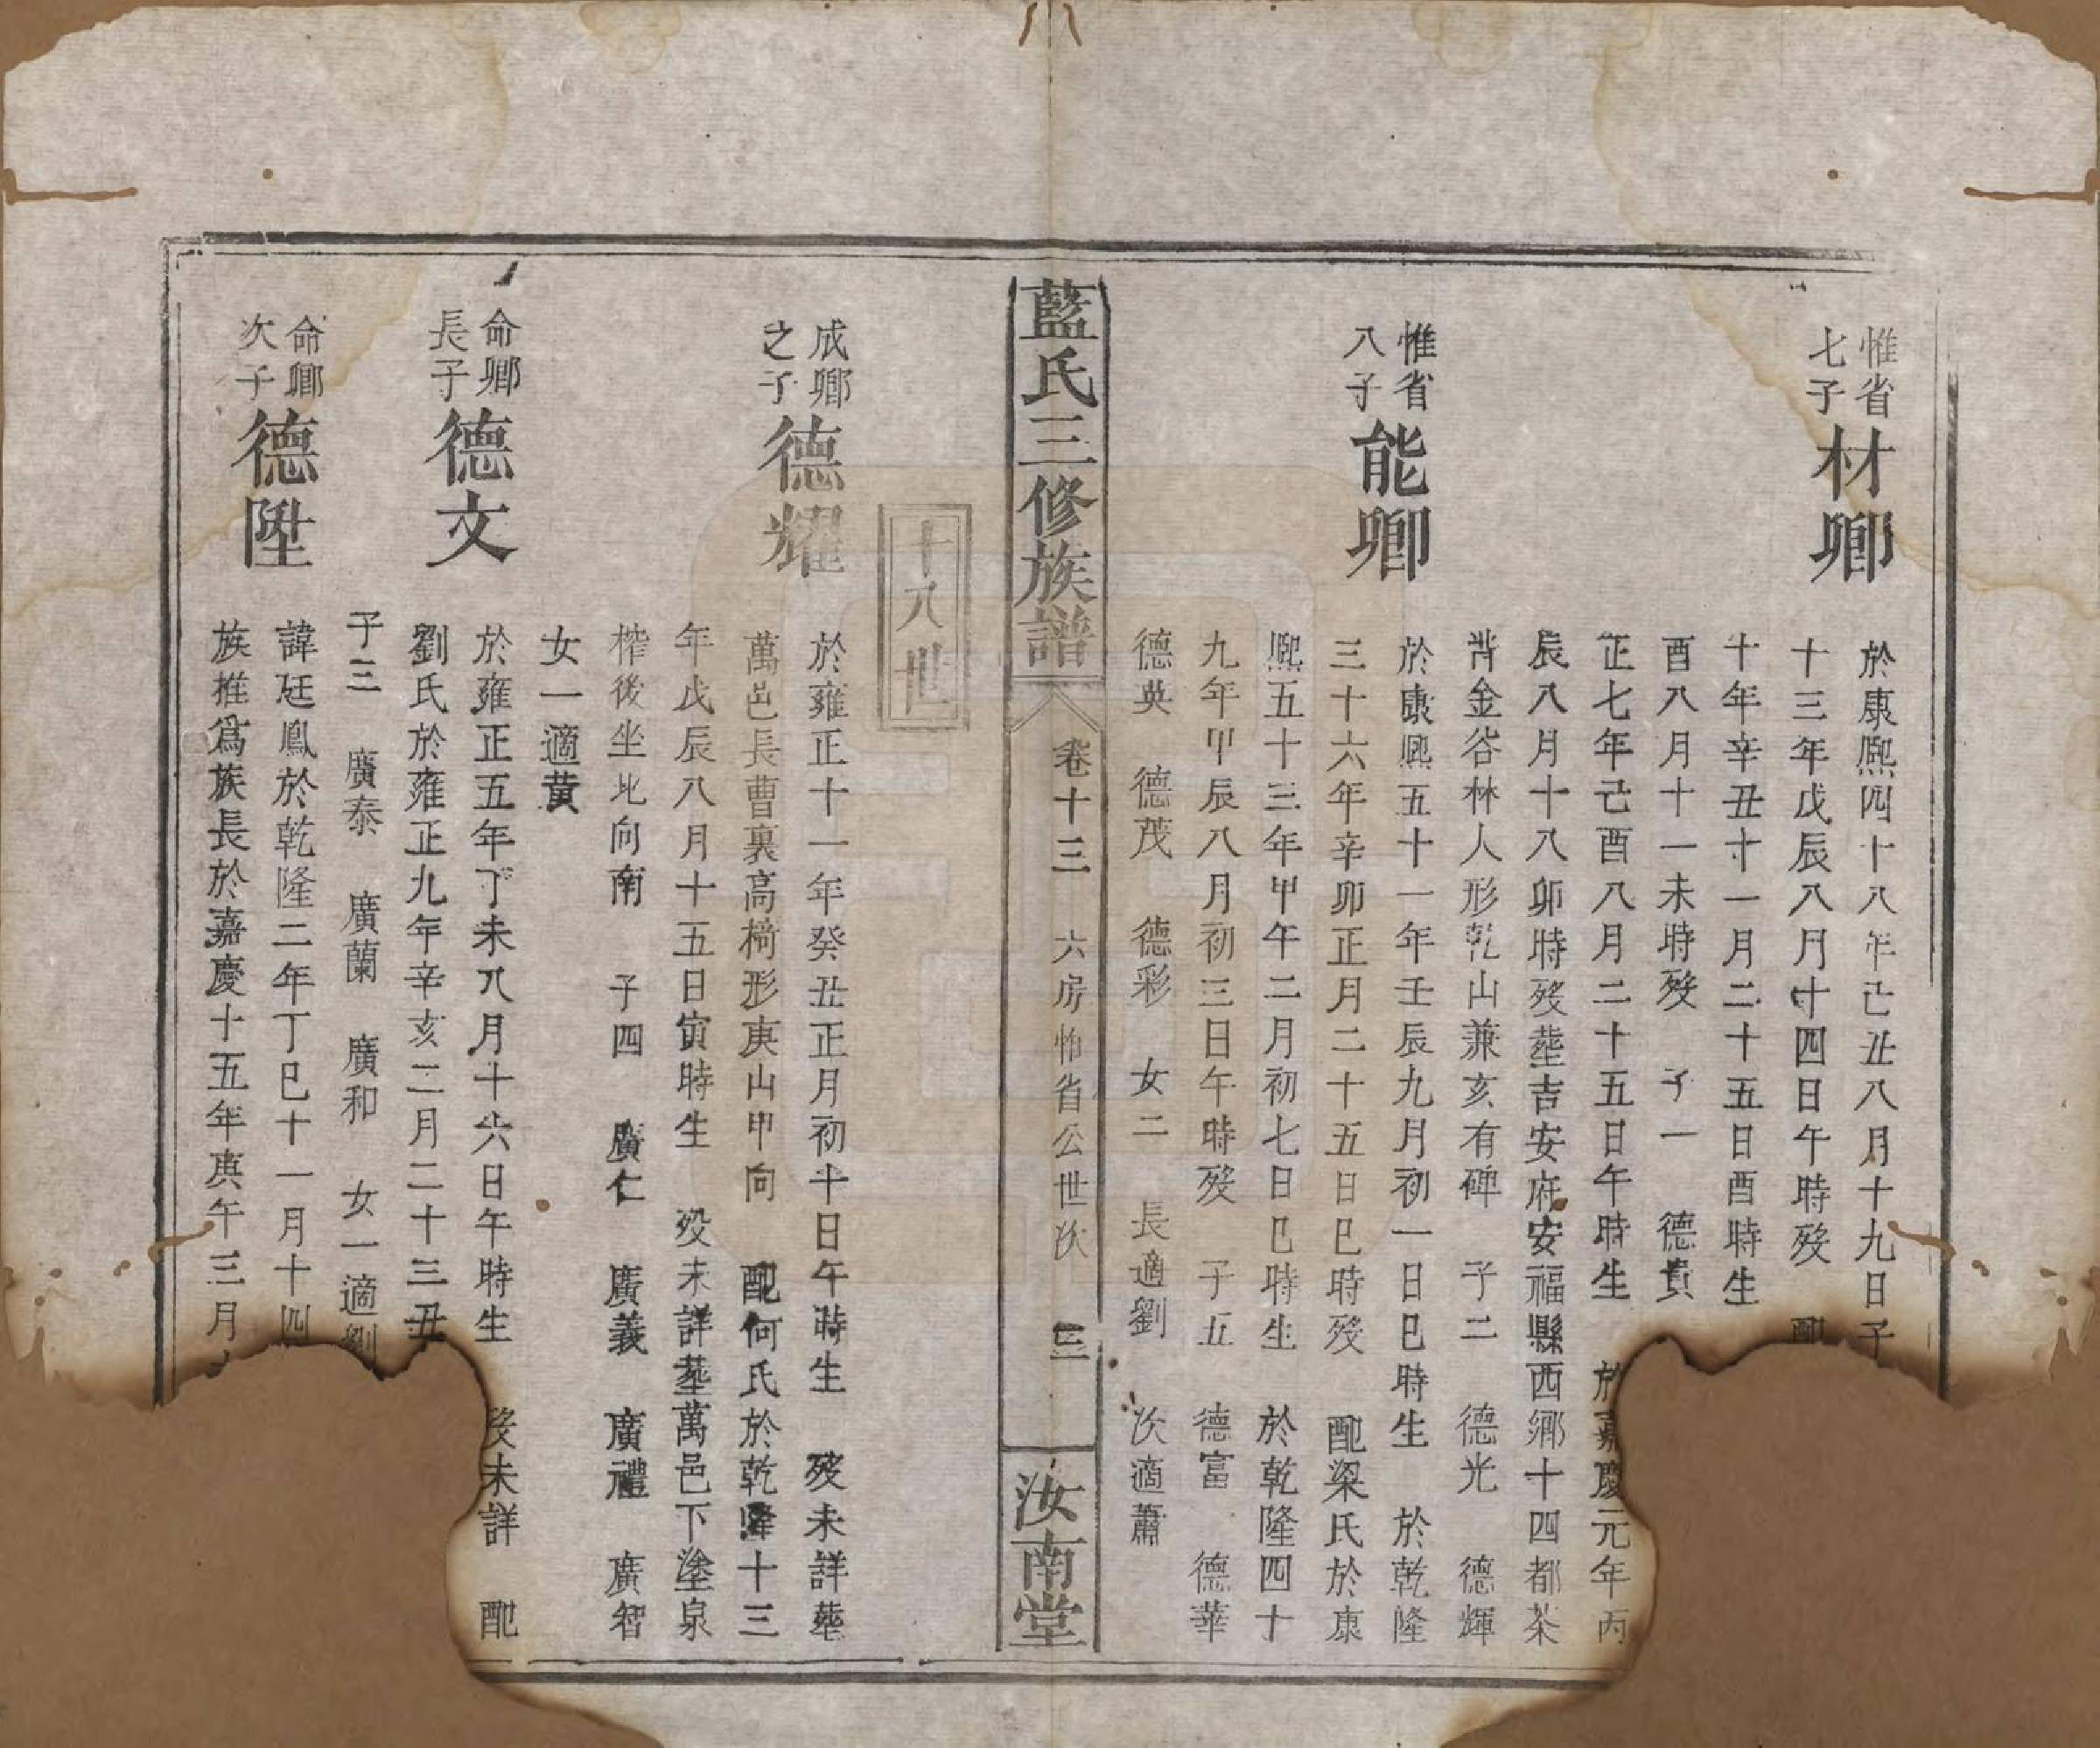 惟省
七子
材卿
於康熙四十八年己丑八月十九日子
十三年戊辰八月十四日午時殁 配
十年辛丑十一月二十五日酉時生
酉八月十一未時殁 子一 德貴
正七年己酉八月二十五日午時生 於嘉慶元年丙
辰八月十八卯時殁塟吉安府安福縣西鄉十四都茶
背金谷林人形乾山兼亥有碑 子二 德光 德輝
惟省
八子
能卿
於康熙五十一年壬辰九月初一日巳時生 於乾隆
三十六年辛卯正月二十五日巳時殁 配梁氏於康
熙五十三年甲午二月初七日巳時生 於乾隆四十
九年甲辰八月初三日午時殁 子五 德富 德華
德英 德茂 德彩 女二 長適劉 次適蕭
藍氏三修族譜
卷十三 六房惟省公世次 三
汝南堂
十八世
成卿
之子
德耀
於雍正十一年癸丑正月初十日午時生 殁未詳塟
萬邑長曹裏高椅形庚山甲向 配何氏於乾隆十三
年戊辰八月十五日寅時生 殁未詳塟萬邑下塗泉
榨後坐北向南 子四 廣仁 廣義 廣禮 廣智
女一適黃
命卿
長子
德文
於雍正五年丁未八月十六日午時生 殁未詳 配
劉氏於雍正九年辛亥二月二十三丑
子三 廣泰 廣蘭 廣和 女一適劉
命卿
次子
德陞
諱廷鳳於乾隆二年丁巳十一月十四
族推爲族長於嘉慶十五年庚午三月